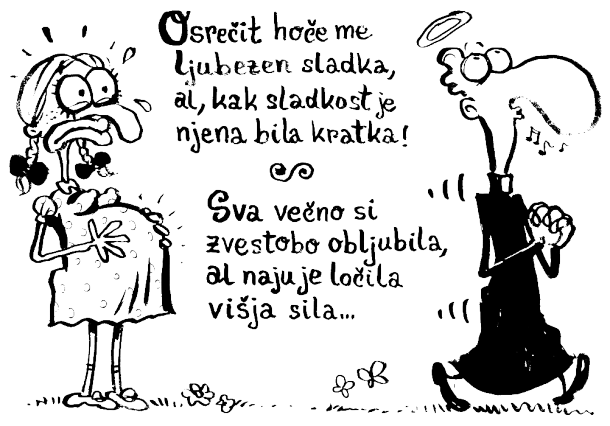 Osrečit hoče me
ljubezen sladka,
al, kak sladkost je
njena bila kratka!
Sva večno si
zvestobo obljubila,
al naju je ločila
višja sila...